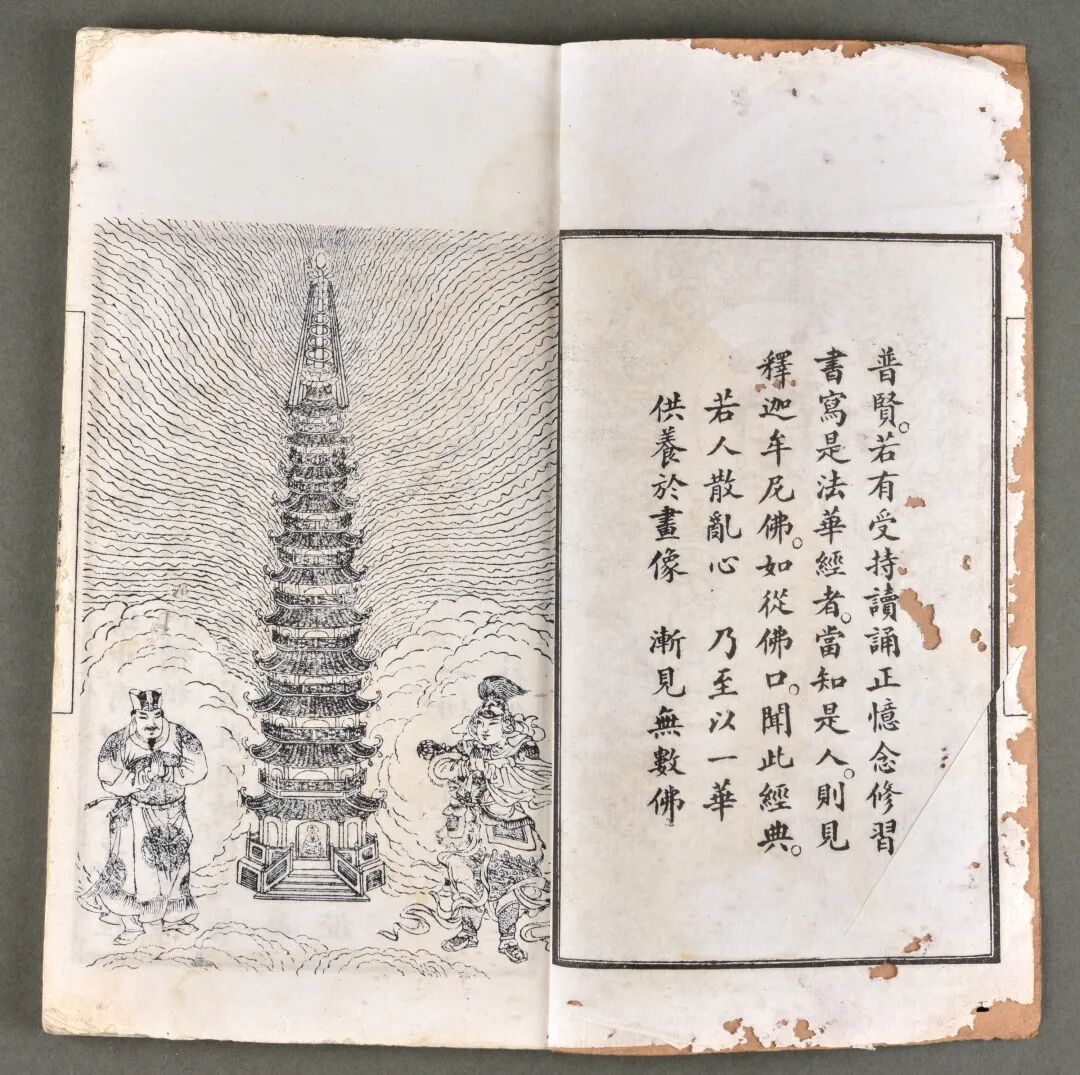 普賢。若有受持讀誦正憶念修習
書寫是法華經者。當知是人。則見
釋迦牟尼佛。如從佛口。聞此經典。
若人散亂心　乃至以一華
供養於畫像　漸見無數佛